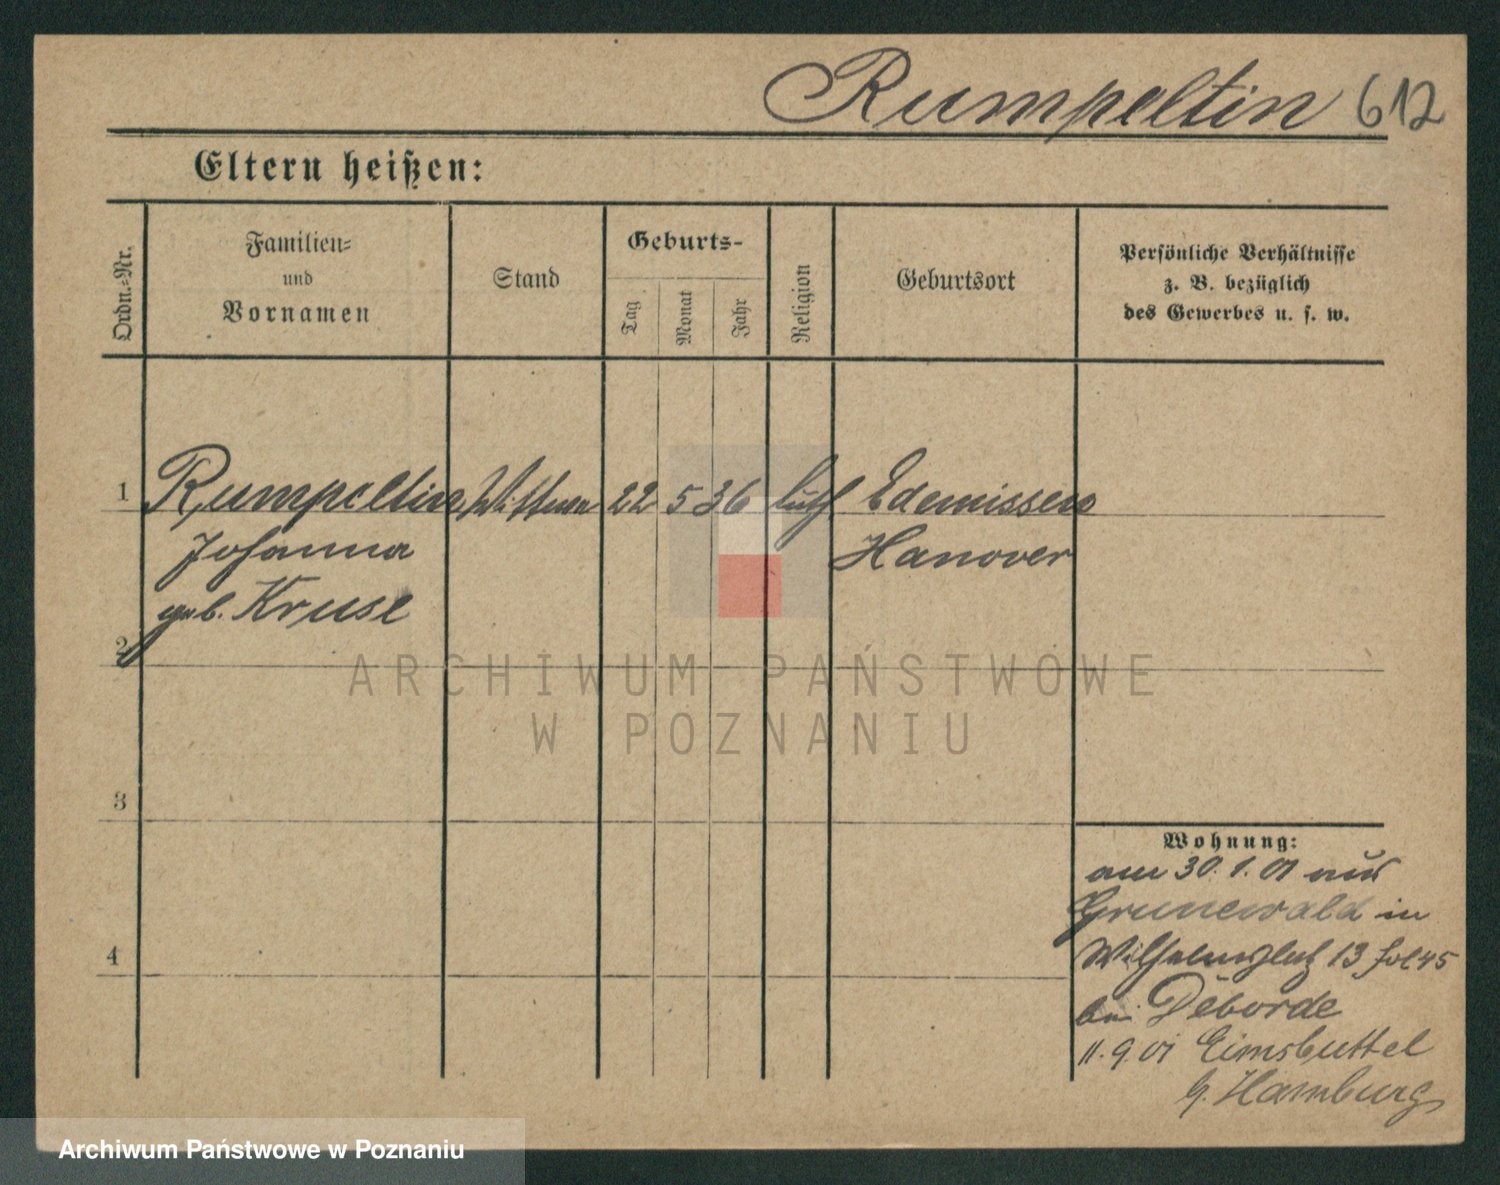 Rumpeltin 612
Eltern heißen:
Ordn.-Nr.
Familien-
und
Vornamen
Stand
Geburts-
Tag
Monat
Jahr
Religion
Geburtsort
Persönliche Verhältnisse
z. B. bezüglich
des Gewerbes u. s. w.
1 Rumpeltin Wittwe 22 5 36 luth Edemissen
Johanna Hanover
geb. Kruse
2
3
4
Wohnung:
am 30.1.01 aus
Grunewald in
Wilhelmsplatz 13 fol 45
bei Deborde
11.9.01 Eimsbuttel
b. Hamburg
ARCHIWUM PAŃSTWOWE
W POZNANIU
Archiwum Państwowe w Poznaniu